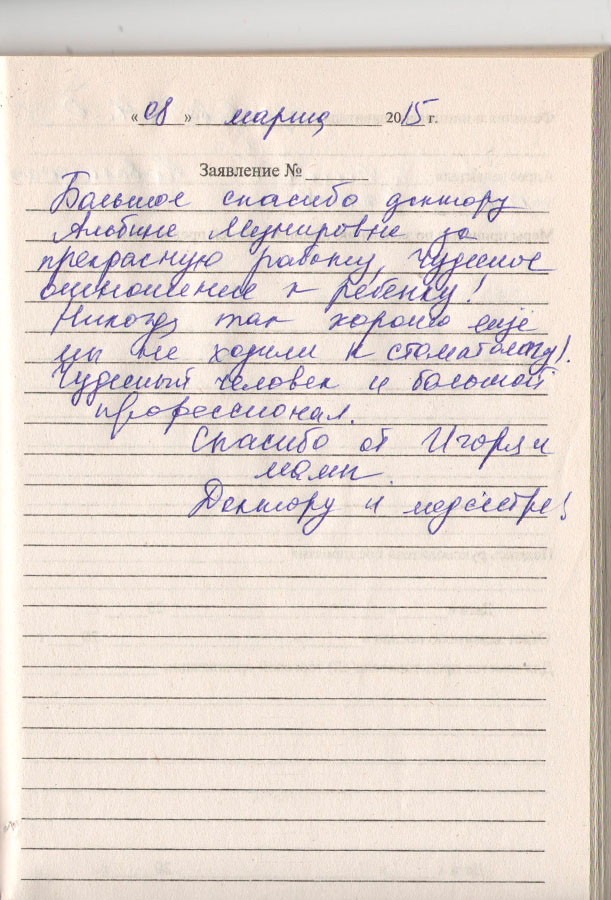 « 08 » марта 2015 г.
Заявление №
Большое спасибо доктору
Альбине Мунировне за
прекрасную работу, чудесное
отношение к ребенку!
Никогда так хорошо ещё
мы не ходили к стоматологу!
Чудесный человек и большой
профессионал.
Спасибо от Игоря и
мамы.
Доктору и медсестре!